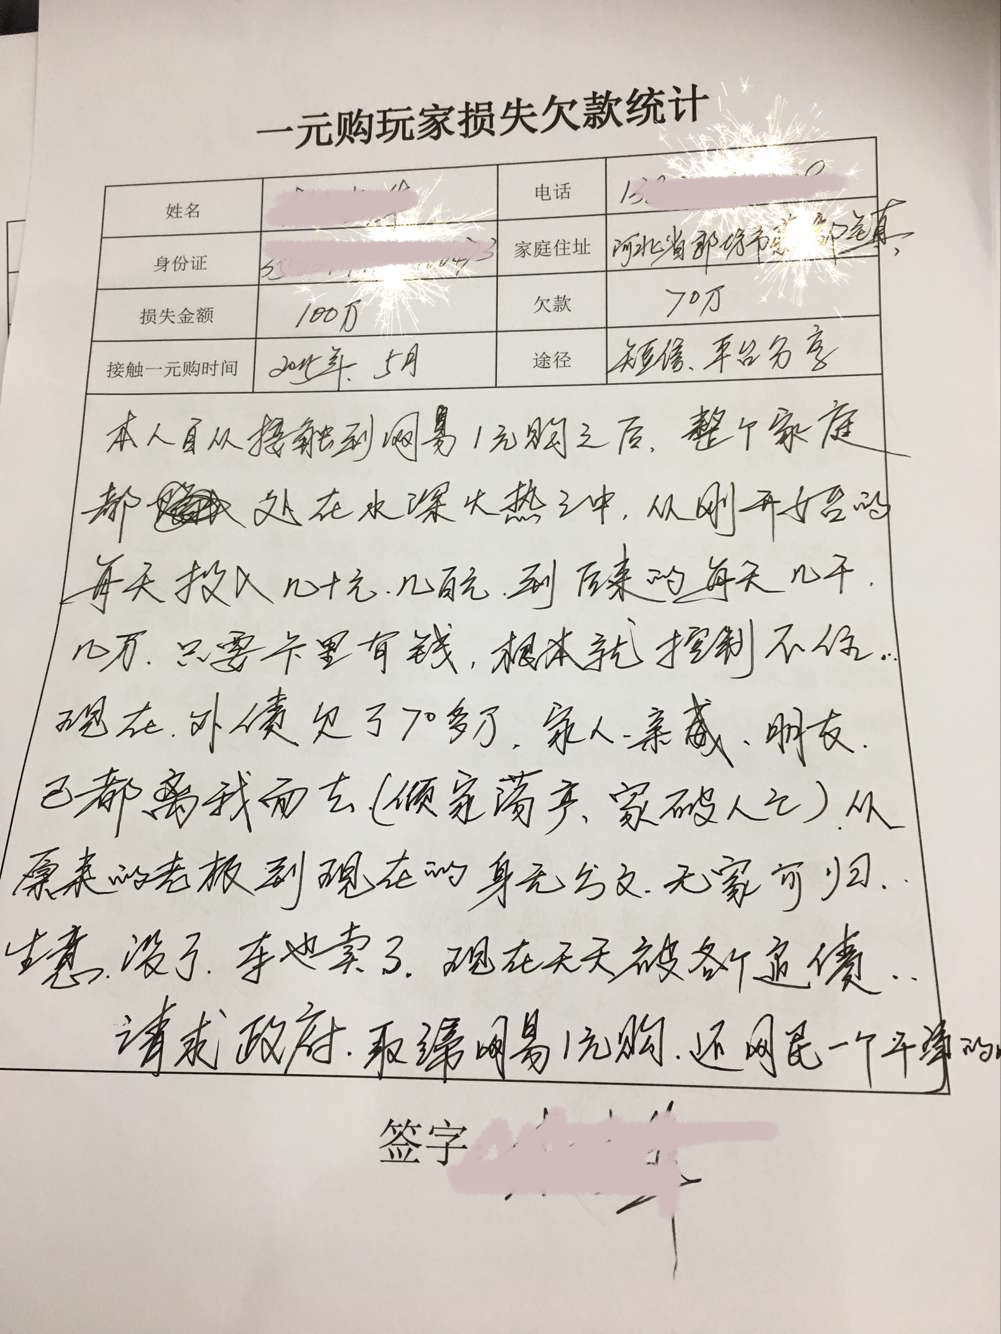 一元购玩家损失欠款统计
姓名 电话
身份证 家庭住址 河北省廊坊市
损失金额 100万 欠款 70万
接触一元购时间 2015年、5月 途径 短信、平台分享
本人自从接触到网易1元购之后，整个家庭
都 处在水深火热之中，从刚开始的
每天投入几十元、几百元、到后来的每天几千、
几万、只要卡里有钱，根本就控制不住..
现在、外债欠了70多万、家人、亲戚、朋友、
已都离我而去（倾家荡产、家破人亡）、从
原来的老板到现在的身无分文、无家可归..
生意、没了、车也卖了、现在天天被各个追债..
请求政府、取缔网易1元购、还网民一个干净的
签字